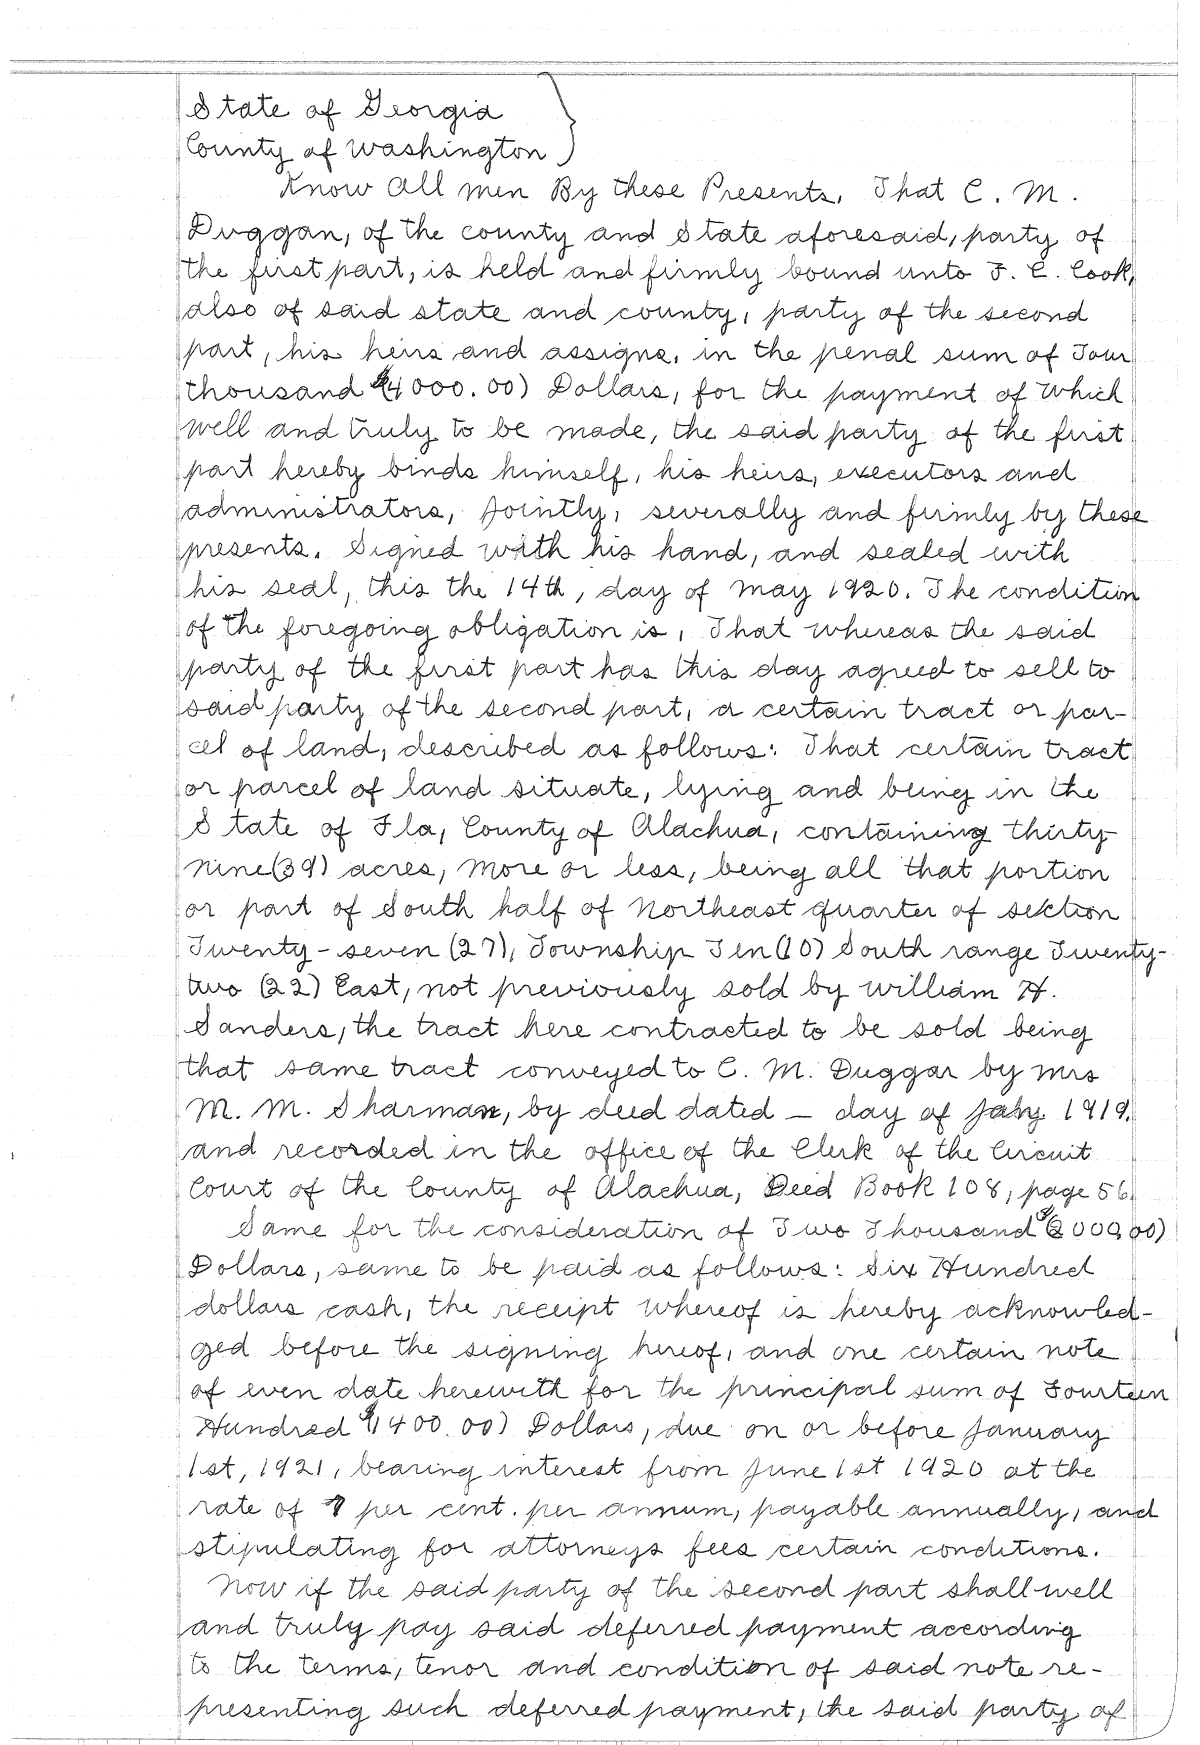 State of Georgia
County of Washington
Know All men By these Presents, That C. M.
Duggan, of the county and State aforesaid, party of
the first part, is held and firmly bound unto F. C. Cook,
also of said state and county, party of the second
part, his heirs and assigns, in the penal sum of Four
thousand ($4000.00) Dollars, for the payment of which
well and truly to be made, the said party of the first
part hereby binds himself, his heirs, executors and
administrators, Jointly, severally and firmly by these
presents. Signed with his hand, and sealed with
his seal, this the 14th, day of May 1920. The condition
of the foregoing obligation is, That whereas the said
party of the first part has this day agreed to sell to
said party of the second part, a certain tract or par-
cel of land, described as follows: That certain tract
or parcel of land situate, lying and being in the
State of Fla, County of Alachua, containing thirty-
nine (39) acres, more or less, being all that portion
or part of South half of Northeast quarter of section
Twenty-seven (27), Township Ten (10) South range Twenty-
two (22) East, not previously sold by William H.
Sanders, the tract here contracted to be sold being
that same tract conveyed to C. M. Duggar by Mrs
M. M. Sharman, by deed dated — day of 1919.
and recorded in the office of the Clerk of the Circuit
Court of the County of Alachua, Deed Book 108, page 56.
Same for the consideration of Two Thousand ($2000.00)
Dollars, same to be paid as follows: Six Hundred
dollars cash, the receipt whereof is hereby acknowled-
ged before the signing hereof, and one certain note
of even date herewith for the principal sum of Fourteen
Hundred ($1400.00) Dollars, due on or before January
1st, 1921, bearing interest from June 1st 1920 at the
rate of 7 per cent. per annum, payable annually, and
stipulating for attorneys fees certain conditions.
Now if the said party of the second part shall well
and truly pay said deferred payment according
to the terms, tenor and condition of said note re-
presenting such deferred payment, the said party of